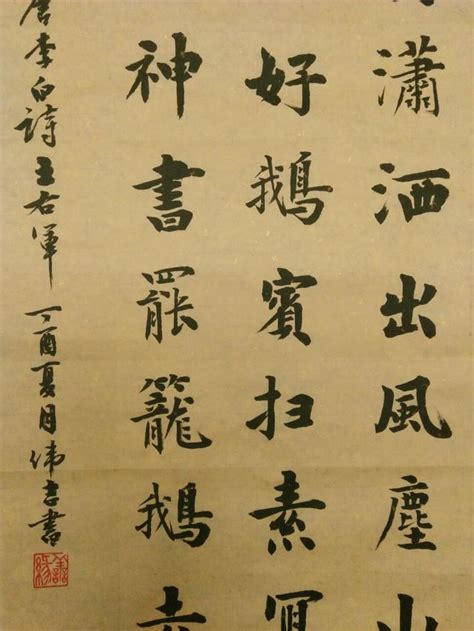 瀟洒出風塵山
好鵝賓扫素冩
神書罷籠鵝去
唐李白詩王右軍 丁酉夏月伟志書
善緣